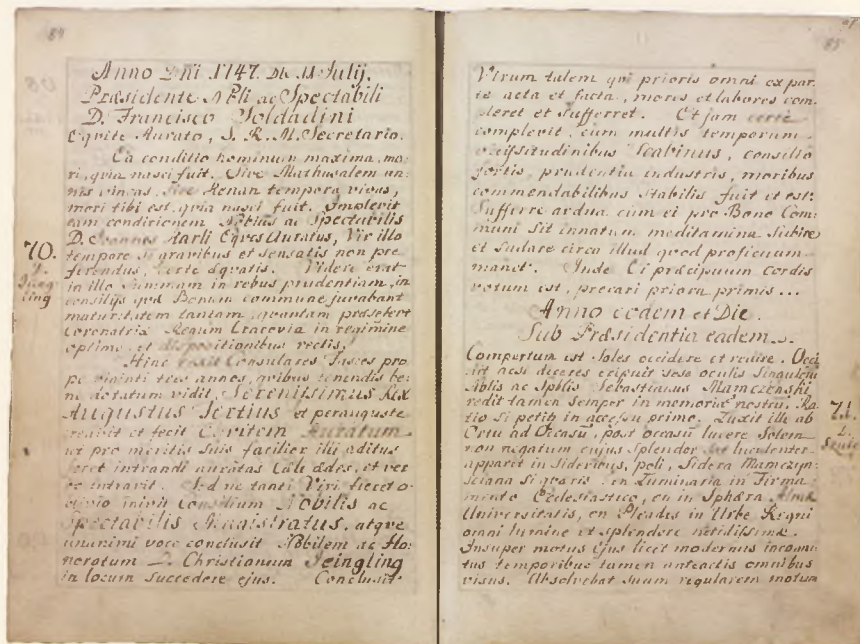 84
Anno Dni 1747. Die 11 Julij.
Præsidente Nbli ac Spectabili
D. Francisco Soldadini
Eqvite Aurato, S. R. M. Secretario.
Ea conditio hominum maxima, mo:
ri, qvia nasci fuit. Sive Mathusalem an:
nis vincas, Sive Henan tempora vivas,
mori tibi est, qvia nasci fuit. Implevit
eam conditionem Nobilis ac Spectabilis
D. Joannes Harli Eqves Auratus, Vir illo
70. tempore si gravibus et sensatis non præ
ferendus, certe æqvatis. Videre erat
in illo Summam in rebus prudentiam, in
consilijs qvæ Bonum commune juvabant
maturitatem tantam, qvantam præsefert
Coronatrix Regum Cracovia in regimine
optimo, et dispositionibus rectis.
Hinc Consulares fasces pro
pe viginti tres annos, qvibus tenendis be:
ne natum vidit, Serenissimus Rex
Augustus Tertius et peraugustè
creavit et fecit Eqvitem Auratum
ut pro meritis suis facilior illi aditus
foret intrandi auratas Cæli ædes, et ver
è intravit. Sed ne tanti Viri fieret o:
blivio inivit Consilium Nobilis ac
Spectabilis Magistratus, atqve
unanimi voce conclusit Nobilem ac Ho:
noratum D. Christianum Jeingling
in locum succedere ejus. Conclusit
85
Virum talem qvi prioris omni ex par:
te acta et facta, mores et labores com:
pleret et Sufferret. Et jam certe
complevit, cum multis temporum
vicissitudinibus Scabinus, consilio
fortis, prudentia industris, moribus
commendabilibus Stabilis fuit et est:
Sufferre ardua cum ei pro Bono Com:
muni Sit innatum meditamina Subire
et Sudare circa illud qvod proficuum
manet. Inde Ei præcipuum Cordis
votum est, precari priora primis...
Anno eodem et Die.
Sub Præsidentia eadem.
Compertum est Soles occidere et redire. Occi
dit acsi diceres eripuit sese oculis Singulis
Nblis ac Spblis Sebastianus Mamczynski
redit tamen Semper in memoriæ nostræ. Ra:
71. tio si petis in accessu primo. Luxit ille ab
Ortu ad Occasũ, post occasũ lucere Solem
non negatum cujus Splendor luculenter
apparit in Sideribus, poli, Sidera Mamczyn:
sciana Si qværis. en Luminaria in Firma:
mento Ecclesiastico, en in Sphæra Almæ
Universitatis, en Pleades in Urbe Regni
omni lumine et splendore nitidissimæ.
Insuper motus Ejus licet modernis incogni:
tus temporibus tamen anteactis omnibus
visus. Absolvebat Suum regularem motum